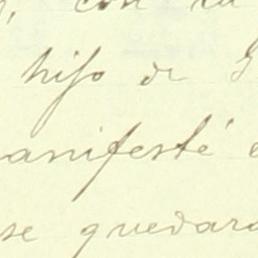 , con la
hijo de
manifesté
se quedara